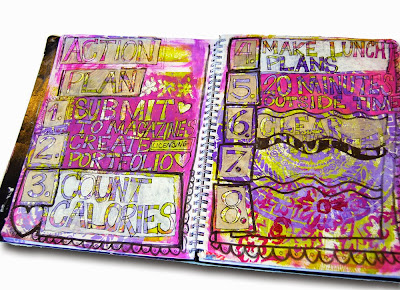 ACTION
PLAN
1. SUBMIT
TO MAGAZINES
2. CREATE LICENSING
PORTFOLIO
3. COUNT
CALORIES
4. MAKE LUNCH
PLANS
5. 20 MINUTES
OUTSIDE TIME
6. CLEAN
7.
8.